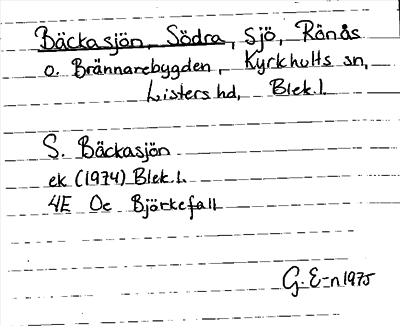 Bäckasjön, Södra, sjö, Rönås
o. Brännarebygden, Kyrkhults sn,
Listers hd, Blek.l.
S. Bäckasjön
ek (1974) Blek.l.
4E Oc Björkefall
G. E-n 1975